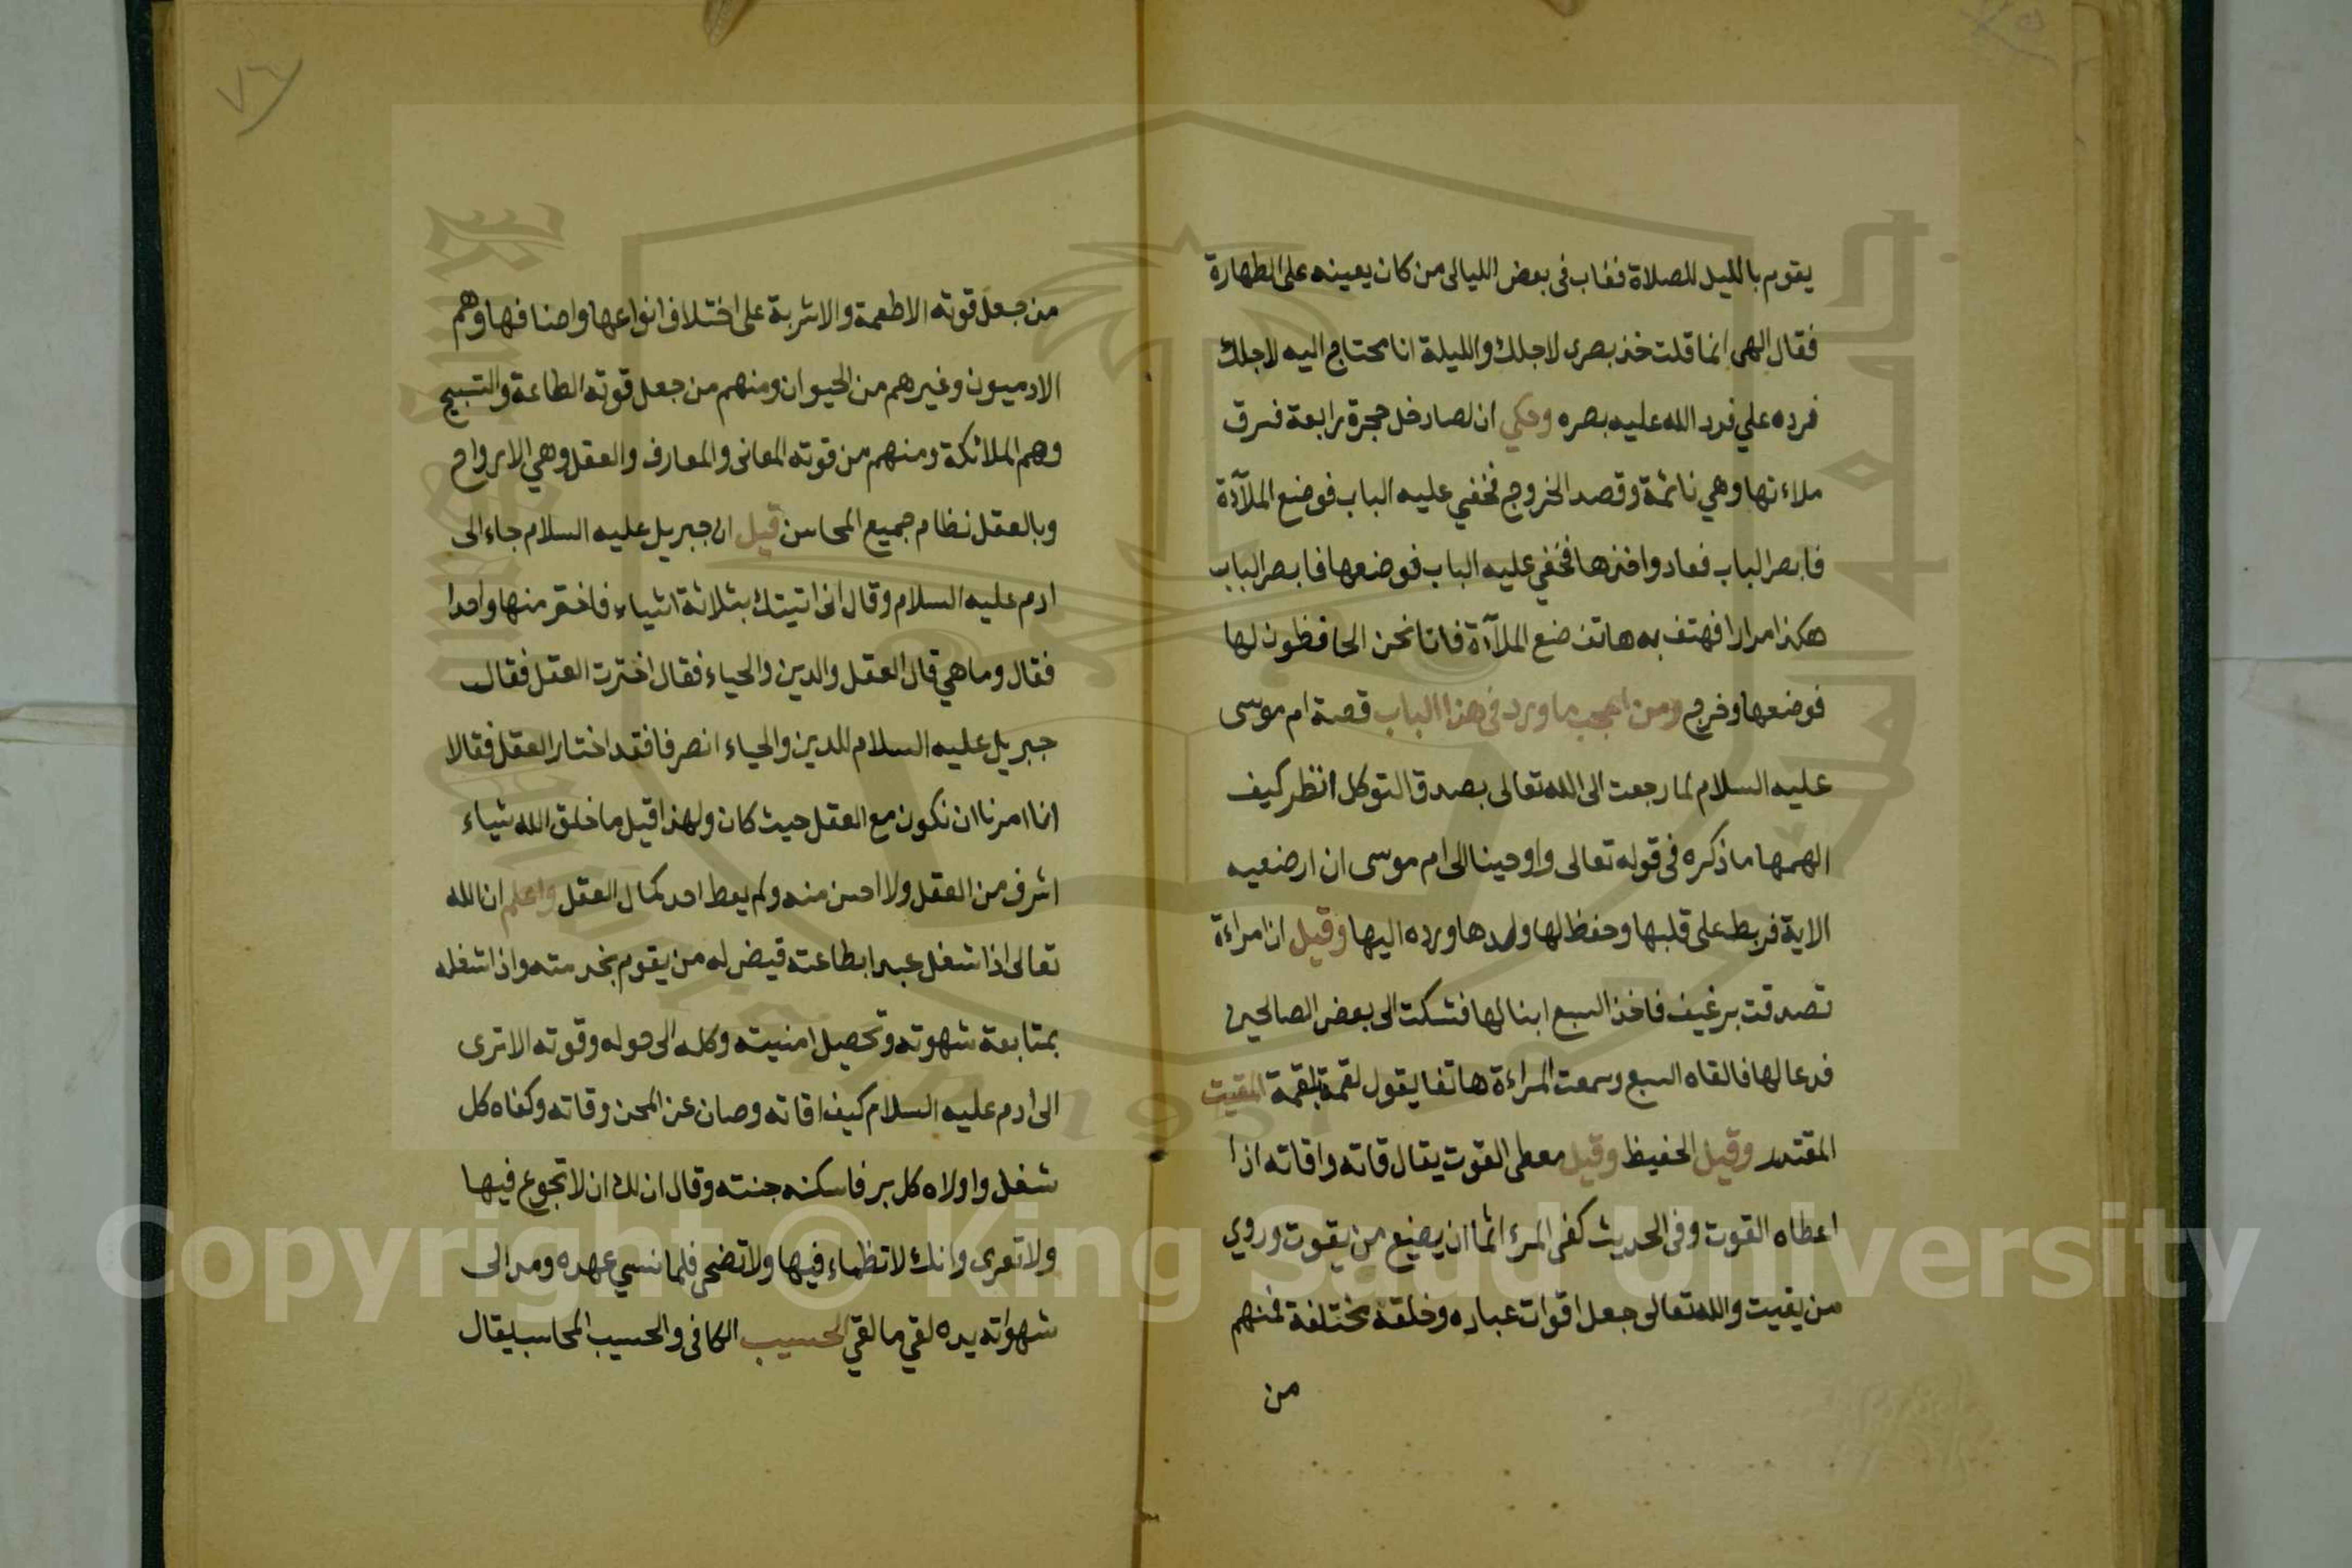 يقوم بالليل للصلاة فغاب فى بعض الليالى من كان يعينه على الطهارة
فقال الهى انما قلت خذ بصرى لاجلك والليلة انا محتاج اليه لاجلك
فرده علي فرد الله عليه بصره وحكي ان لصا دخل حجرة رابعة فسرق
ملاءتها وهي نائمة وقصد الخروج فخفي عليه الباب فوضع الملآءة
فابصر الباب فعاد واخذها فخفي عليه الباب فوضعها فابصر الباب
هكذا مرارا فهتف به هاتف ضع الملآءة فانا نحن الحافظون لها
فوضعها وخرج ومن اعجب ما ورد فى هذا الباب قصة ام موسى
عليه السلام لما رجعت الى الله تعالى بصدق التوكل انظر كيف
الهمها ما ذكره فى قوله تعالى واوحينا الى ام موسى ان ارضعيه
الاية فربط على قلبها وحفظ لها ولدها ورده اليها وقيل ان امراءة
تصدقت برغيف فاخذ السبع ابنا لها فشكت الى بعض الصالحين
فدعا لها فالقاه السبع وسمعت المراءة هاتفا يقول لقمة بلقمة المقيت
المقتدر وقيل الحفيظ وقيل معطى القوت يقال قاته واقاته اذا
اعطاه القوت وفى الحديث كفى المرء اثما ان يضيع من يقوت وروي
من يقيت والله تعالى جعل اقوات عباده وخلقه مختلفة فمنهم
من
٧٦
من جعل قوته الاطعمة والاشربة على اختلاف انواعها واصنافها وهم
الادميون وغيرهم من الحيوان ومنهم من جعل قوته الطاعة والتسبيح
وهم الملائكة ومنهم من قوته المعانى والمعارف والعقل وهي الارواح
وبالعقل نظام جميع المحاسن قيل ان جبريل عليه السلام جاء الى
ادم عليه السلام وقال انى اتيتك بثلاثة اشياء فاختر منها واحدا
فقال وما هي قال العقل والدين والحياء فقال اخترت العقل فقال
جبريل عليه السلام للدين والحياء انصرفا فقد اختار العقل فقالا
انا امرنا ان نكون مع العقل حيث كان ولهذا قيل ما خلق الله شياء
اشرف من العقل ولا احسن منه ولم يعط احد كمال العقل واعلم ان الله
تعالى اذا شغل عبدا بطاعته قيض له من يقوم بخدمته واذا شغله
بمتابعة شهوته وتحصيل امنيته وكله الى حوله وقوته الا ترى
الى ادم عليه السلام كيف اقاته وصان عن المحن وقاته وكفاه كل
شغل واولاه كل بر فاسكنه جنته وقال ان لك ان لا تجوع فيها
ولا تعرى وانك لا تظماء فيها ولا تضحى فلما نسي عهده ومد الى
شهواته يده لقي ما لقي الحسيب الكافى والحسيب المحاسب يقال
Copyright © King Saud University